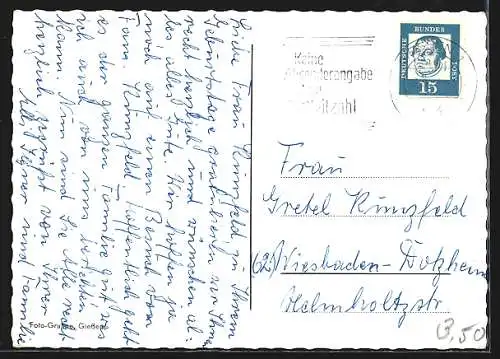 Liebe Frau Kunzfeld, zu Ihrem
Geburtstage gratulieren wir Ihnen
recht herzlich und wünschen al-
les alles Gute. Wir hoffen ja
noch auf einen Besuch von
Fam. Kunzfeld. Hoffentlich geht
es der ganzen Familie gut, was
ich auch von uns berichten
kann. Nun sind Sie alle recht
herzlich gegrüßt von Ihrer
und Familie
Foto-Gießen
Keine
Absenderangabe
ohne
Postleitzahl
DEUTSCHE BUNDESPOST
15
Frau
Gretel Kunzfeld
(62) Wiesbaden-Dotzheim
Helmholtzstr
3,50